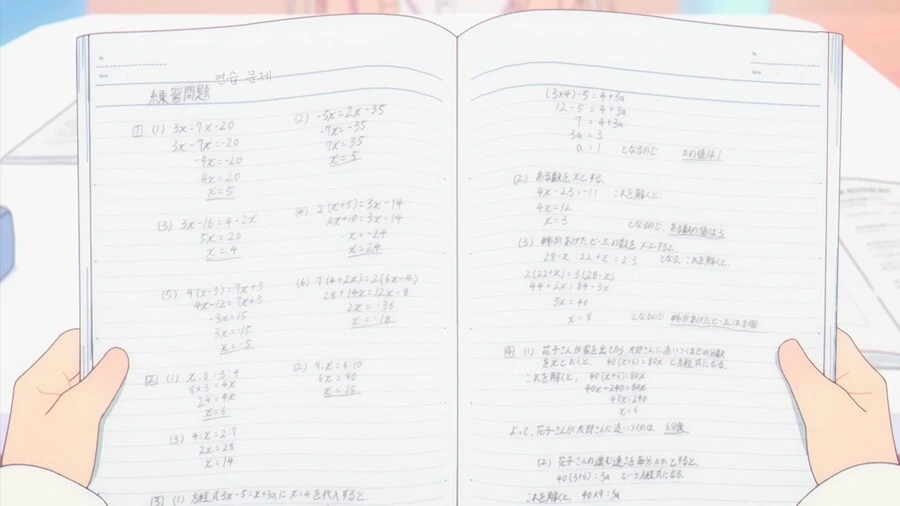 연습 문제
練習問題
1 (1) 3x=7x-20
3x-7x=-20
-4x=-20
4x=20
x=5
(2) -5x=2x-35
-7x=-35
7x=35
x=5
(3) 3x-16=4-2x
5x=20
x=4
(4) 2(x+5)=3x-14
2x+10=3x-14
x=-24
x=24
(5) 4(x-3)=7x+3
4x-12=7x+3
-3x=15
3x=-15
x=-5
(6) 7(4+2x)=2(6x-4)
28+14x=12x-8
2x=-36
x=-18
2 (1) x:8=3:4
8×3=4x
24=4x
x=6
(2) 9:x=6:10
6x=90
x=15
(3) 4:x=2:7
2x=28
x=14
3 (1) 方程式3x-5=x+3aにx=4を代入すると、
(3×4)-5=4+3a
12-5=4+3a
7=4+3a
3a=3
a=1 となるので aの値は1
(2) ある数をxとする。
4x-23=-11 これを解くと、
4x=12
x=3 となるので ある数の値は3
(3) 姉があげたビー玉の数をxとすると、
28-x 22+x=2:3 となる。これを解くと、
2(22+x)=3(28-x)
44+2x=84-3x
5x=40
x=8 となるので 姉があげたビー玉は8個
4 (1) 花子さんが家を出てから、太郎さんに追いつくまでの分数
をxとおくと、 40(x+6)=80x と方程式になる。
これを解くと、 40(x+6)=80x
40x+240=80x
40x=240
x=6
よって、花子さんが太郎さんに追いつくのは 6分後
(2) 花子さんの進む速さを毎分amとすると、
40(3+6)=3a という方程式になる。
これを解くと、 40×9=3a